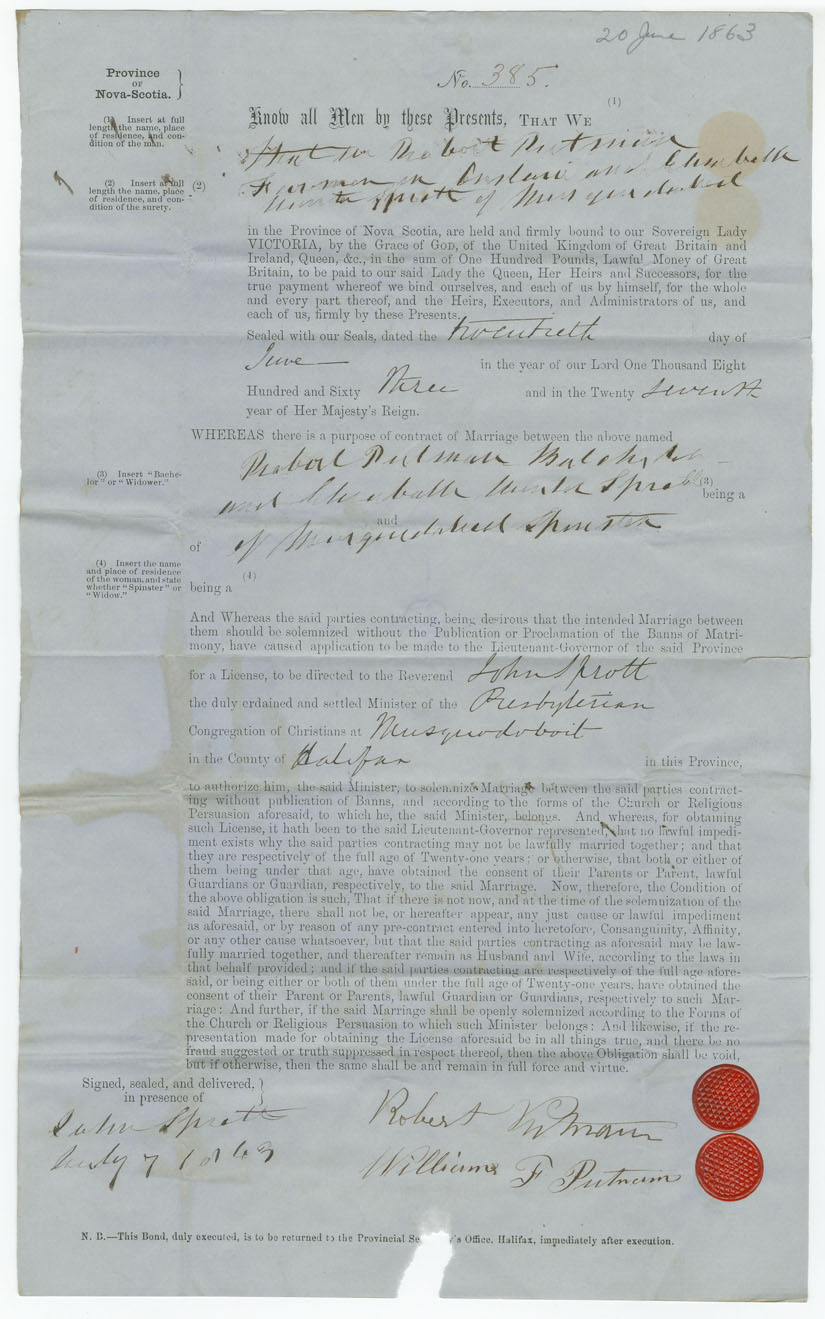 20 June 1863
Province
OF
Nova-Scotia. }
No. 385.
(1)
(1) Insert at full
length the name, place
of residence, and con-
dition of the man.
Know all Men by these Presents, THAT WE
that we Robert Putman
(2) Insert at full
length the name, place
of residence, and con-
dition of the surety.
(2)
Farmer in Onslow and Elisabeth
Sprott of Musquodoboit
in the Province of Nova Scotia, are held and firmly bound to our Sovereign Lady
VICTORIA, by the Grace of God, of the United Kingdom of Great Britain and
Ireland, Queen, &c., in the sum of One Hundred Pounds, Lawful Money of Great
Britain, to be paid to our said Lady the Queen, Her Heirs and Successors, for the
true payment whereof we bind ourselves, and each of us by himself, for the whole
and every part thereof, and the Heirs, Executors, and Administrators of us, and
each of us, firmly by these Presents.
Sealed with our Seals, dated the twentieth day of
June in the year of our Lord One Thousand Eight
Hundred and Sixty three and in the Twenty seventh
year of Her Majesty's Reign.
WHEREAS there is a purpose of contract of Marriage between the above named
Robert Putman
(3) Insert "Bache-
lor" or "Widower."
and Elisabeth Sprott (3)
being a
and
of
of Musquodoboit Spinster
(4) Insert the name
and place of residence
of the woman, and state
whether "Spinster" or
"Widow."
(4)
being a
And Whereas the said parties contracting, being desirous that the intended Marriage between
them should be solemnized without the Publication or Proclamation of the Banns of Matri-
mony, have caused application to be made to the Lieutenant-Governor of the said Province
for a License, to be directed to the Reverend John Sprott
the duly ordained and settled Minister of the Presbyterian
Congregation of Christians at Musquodoboit
in the County of Halifax in this Province,
to authorize him, the said Minister, to solemnize Marriage between the said parties contract-
ing without publication of Banns, and according to the forms of the Church or Religious
Persuasion aforesaid, to which he, the said Minister, belongs. And whereas, for obtaining
such License, it hath been to the said Lieutenant-Governor represented, that no lawful impedi-
ment exists why the said parties contracting may not be lawfully married together; and that
they are respectively of the full age of Twenty-one years; or otherwise, that both or either of
them being under that age, have obtained the consent of their Parents or Parent, lawful
Guardians or Guardian, respectively, to the said Marriage. Now, therefore, the Condition of
the above obligation is such, That if there is not now, and at the time of the solemnization of the
said Marriage, there shall not be, or hereafter appear, any just cause or lawful impediment
as aforesaid, or by reason of any pre-contract entered into heretofore, Consanguinity, Affinity,
or any other cause whatsoever, but that the said parties contracting as aforesaid may be law-
fully married together, and thereafter remain as Husband and Wife, according to the laws in
that behalf provided; and if the said parties contracting are respectively of the full age afore-
said, or being either or both of them under the full age of Twenty-one years, have obtained the
consent of their Parent or Parents, lawful Guardian or Guardians, respectively to such Mar-
riage: And further, if the said Marriage shall be openly solemnized according to the Forms of
the Church or Religious Persuasion to which such Minister belongs: And likewise, if the re-
presentation made for obtaining the License aforesaid be in all things true, and there be no
fraud suggested or truth suppressed in respect thereof, then the above Obligation shall be void,
but if otherwise, then the same shall be and remain in full force and virtue.
Signed, sealed, and delivered, }
in presence of
John Sprott
July 7 1863
Robert Putman
William F Putnam
N. B.—This Bond, duly executed, is to be returned to the Provincial Se y's Office, Halifax, immediately after execution.